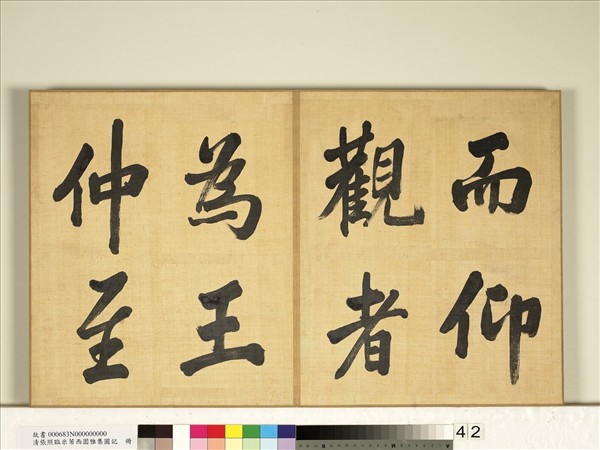 而仰
觀者
為王
仲至
故書 000683N000000000
清張照臨米芾西園雅集圖記 冊
42